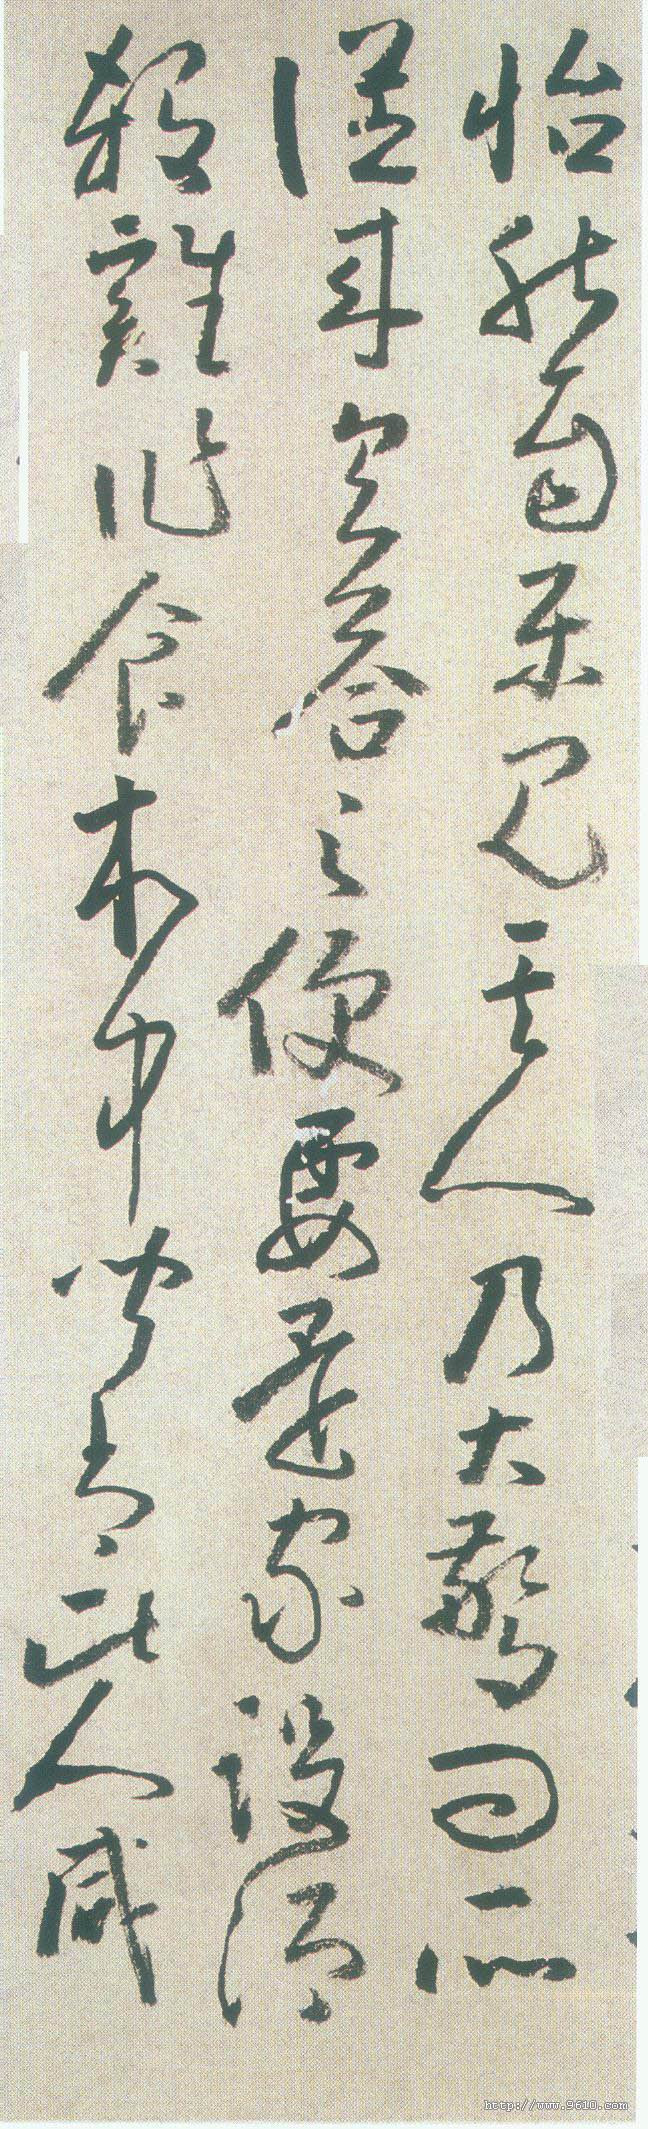 怡然自樂見其人乃大驚問所
從来具答之便要還家設酒
殺雞作食村中聞有此人咸
http://www.9610.com